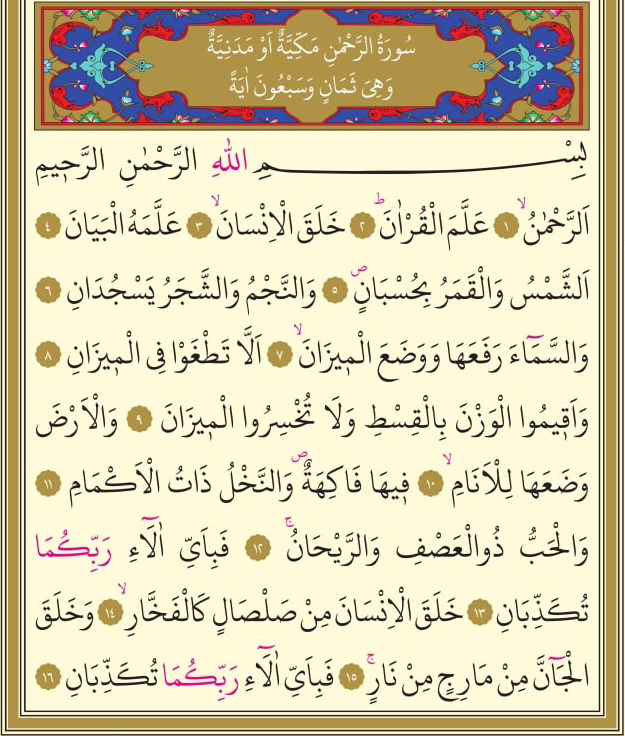 سُورَةُ الرَّحْمٰنِ مَكِّيَّةٌ اَوْ مَدَنِيَّةٌ
وَهِىَ ثَمَانٍ وَسَبْعُونَ اٰيَةً
بِسْمِ اللّٰهِ الرَّحْمٰنِ الرَّحٖيمِ
اَلرَّحْمٰنُۙ ﴿١﴾ عَلَّمَ الْقُرْاٰنَؕ ﴿٢﴾ خَلَقَ الْاِنْسَانَۙ ﴿٣﴾ عَلَّمَهُ الْبَيَانَ ﴿٤﴾
اَلشَّمْسُ وَالْقَمَرُ بِحُسْبَانٍۖ ﴿٥﴾ وَالنَّجْمُ وَالشَّجَرُ يَسْجُدَانِ ﴿٦﴾
وَالسَّمَٓاءَ رَفَعَهَا وَوَضَعَ الْمٖيزَانَۙ ﴿٧﴾ اَلَّا تَطْغَوْا فِى الْمٖيزَانِ ﴿٨﴾
وَاَقٖيمُوا الْوَزْنَ بِالْقِسْطِ وَلَا تُخْسِرُوا الْمٖيزَانَ ﴿٩﴾ وَالْاَرْضَ
وَضَعَهَا لِلْاَنَامِۙ ﴿١٠﴾ فٖيهَا فَاكِهَةٌۖ وَالنَّخْلُ ذَاتُ الْاَكْمَامِ ﴿١١﴾
وَالْحَبُّ ذُوالْعَصْفِ وَالرَّيْحَانُۚ ﴿١٢﴾ فَبِاَىِّ اٰلَٓاءِ رَبِّكُمَا
تُكَذِّبَانِ ﴿١٣﴾ خَلَقَ الْاِنْسَانَ مِنْ صَلْصَالٍ كَالْفَخَّارِۙ ﴿١٤﴾ وَخَلَقَ
الْجَٓانَّ مِنْ مَارِجٍ مِنْ نَارٍۚ ﴿١٥﴾ فَبِاَىِّ اٰلَٓاءِ رَبِّكُمَا تُكَذِّبَانِ ﴿١٦﴾